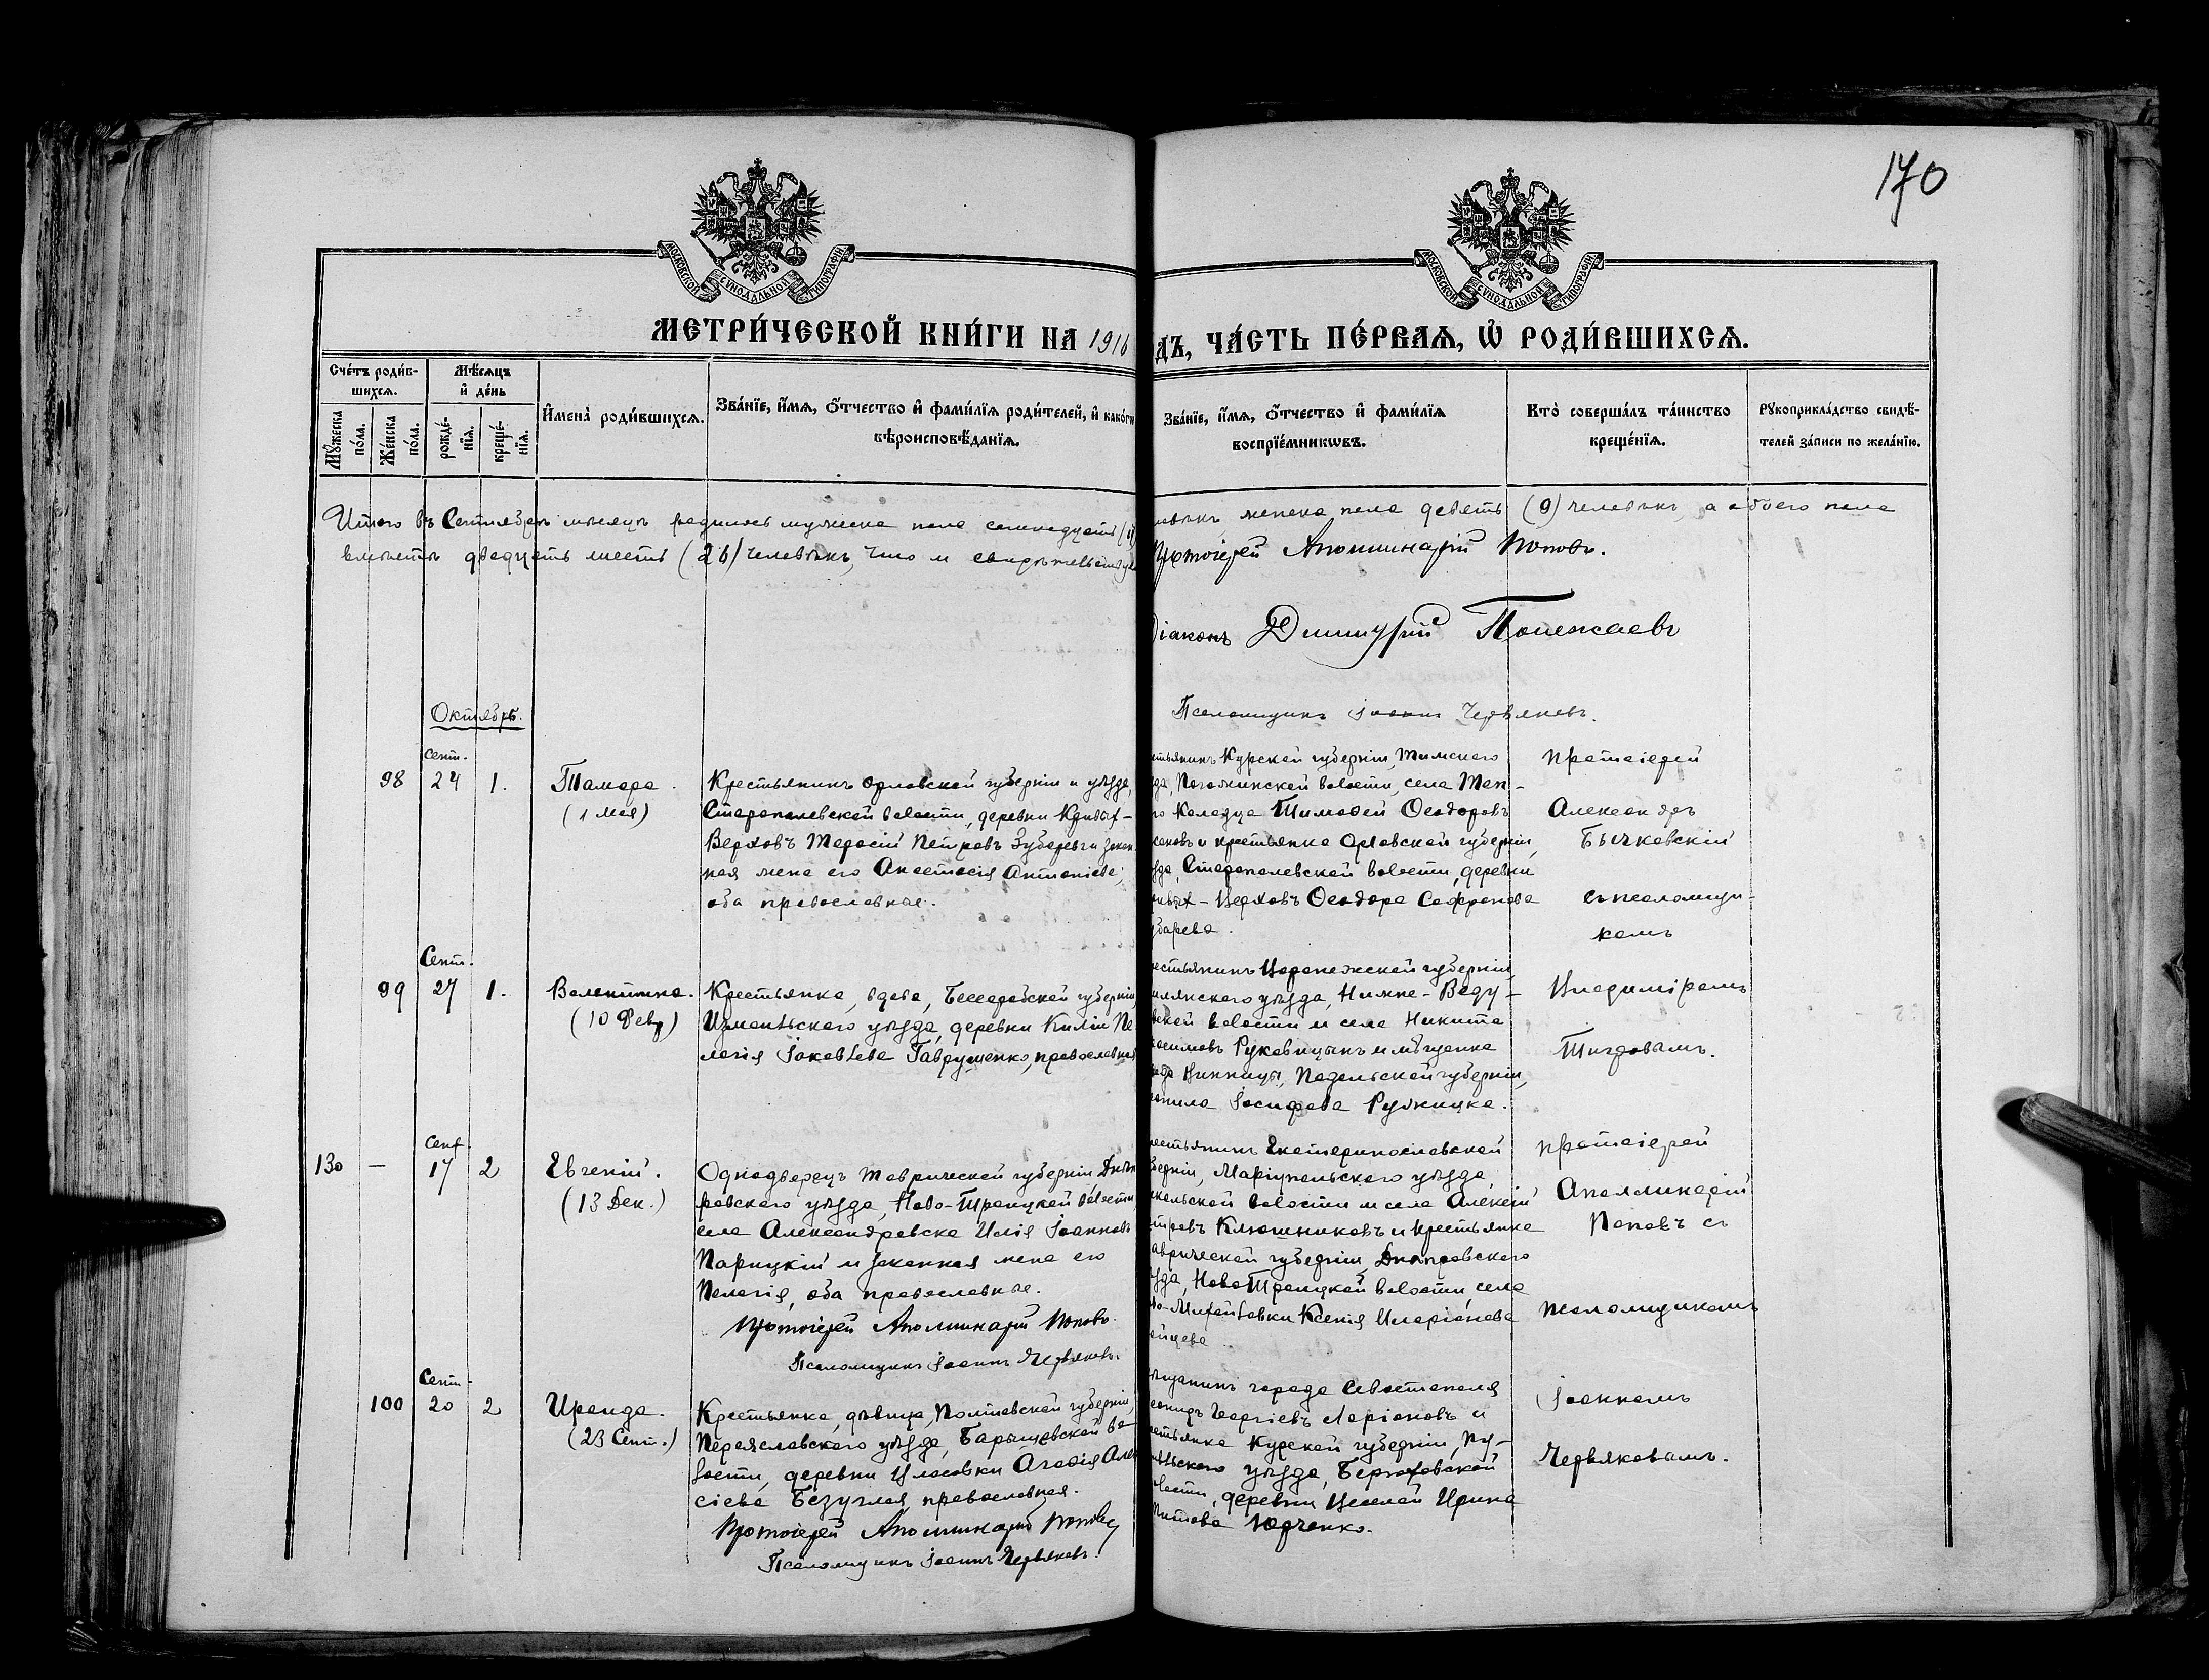 170
МОСКОВСКОЙ СѴНОДАЛЬНОЙ ТИПОГРАФІИ
МОСКОВСКОЙ СѴНОДАЛЬНОЙ ТИПОГРАФІИ
МЕТРИ́ЧЕСКОЙ КНИ́ГИ НА 1916
ДЪ, ЧА́СТЬ ПЕ́РВАѦ, Ѡ҆ РОДИ́ВШИХСѦ.
Сче́тъ роди́в-
шихсѧ.
Мꙋ́жеска по́ла.
Же́нска по́ла.
Мѣ́сѧцъ
и҆ де́нь
рожде́-
нїѧ.
креще́-
нїѧ.
И҆мена̀ роди́вшихсѧ.
Зва́нїе, и҆́мѧ, ѻ҆́тчество и҆ фами́лїѧ роди́телей, и҆ како́гѡ
вѣроисповѣ́данїѧ.
Зва́нїе, и҆́мѧ, ѻ҆́тчество и҆ фами́лїѧ
воспрїе́мникѡвъ.
Кто̀ соверша́лъ та́инство
креще́нїѧ.
Рꙋкоприкла́дство свидѣ́-
телей за́писи по жела́нїю.
Итого въ Сентябрѣ мѣсяцѣ родилось мужеска пола семнадцать
женска пола девять (9) человѣкъ, а обоего пола
вмѣстѣ двадцать шесть (26) человѣкъ, что и
Протоіерей Аполлинарій Поповъ.
Діаконъ Димитрій Полежаевъ
Псаломщикъ Іоаннъ Червяковъ.
Октябрь.
Сент.
98 24 1. Тамара.
(1 Мая)
Крестьянинъ Орловской губерніи и уѣзда,
Старополевской волости, деревни Кривых-
Верховъ Тарасій Петровъ Зубаревъ и закон-
ная жена его Анастасія Антоніева,
оба православные.
стьянинъ Курской губерніи, Тимскаго
да, волости, села Теп-
го Колодца Тимофей Ѳеодоровъ
и крестьянка Орловской губерніи,
зда, Старополевской волости, деревни
ивых-Верховъ Ѳеодора Сафронова
убарева.
Протоіерей
Александръ
Бычковскій
съ псаломщи-
комъ
Сент.
99 27 1. Валентина.
(10 Февр)
Крестьянка, вдова, Бессарабской губерніи,
Измаильскаго уѣзда, деревни Киліи Пе
лагія Іаковлева Гавруженко, православная
естьянинъ Воронежской губерніи,
млянскаго уѣзда, Нижне-Веду-
вской волости и села Никита
Руковицынъ и мѣщанка
Винницы, Подольской губерніи,
Іосифова Ружицка.
Владиміромъ
Тигровымъ.
Сент.
130 — 17 2 Евгеній.
(13 Дек.)
Однодворецъ Таврической губерніи Днѣп
ровскаго уѣзда, Ново-Троицкой волости,
села Александровка Илія Іоанновъ
Парицкій и законная жена его
Пелагія, оба православные.
Протоіерей Аполлинарій Поповъ
Псаломщикъ Іоаннъ Червяковъ.
естьянинъ Екатеринославской
берніи, Маріупольскаго уѣзда,
волости и села Алексій
тровъ Ключниковъ и крестьянка
аврической губерніи, Днѣпровскаго
ѣзда, НовоТроицкой волости, села
во-Михайловки Ксенія Иларіонова
Протоіерей
Аполлинарій
Поповъ съ
псаломщикомъ
Сент-
100 20 2 Ираида.
(23 Сент.)
Крестьянка, дѣвица, Полтавской губерніи,
Переяславскаго уѣзда, Барышевской во-
лости, деревни Власовки Агафія Алек
сіева Безуглая, православная.
Протоіерей Аполлинарій Поповъ
Псаломщикъ Іоаннъ Червяковъ.
ѣщанинъ города Севастополя
Георгіевъ Ларіоновъ и
естьянка Курской губерніи, Пу-
вльскаго уѣзда, волости, деревни Веселой Ирина
Титова Юрченко.
Іоанномъ
Червяковымъ.